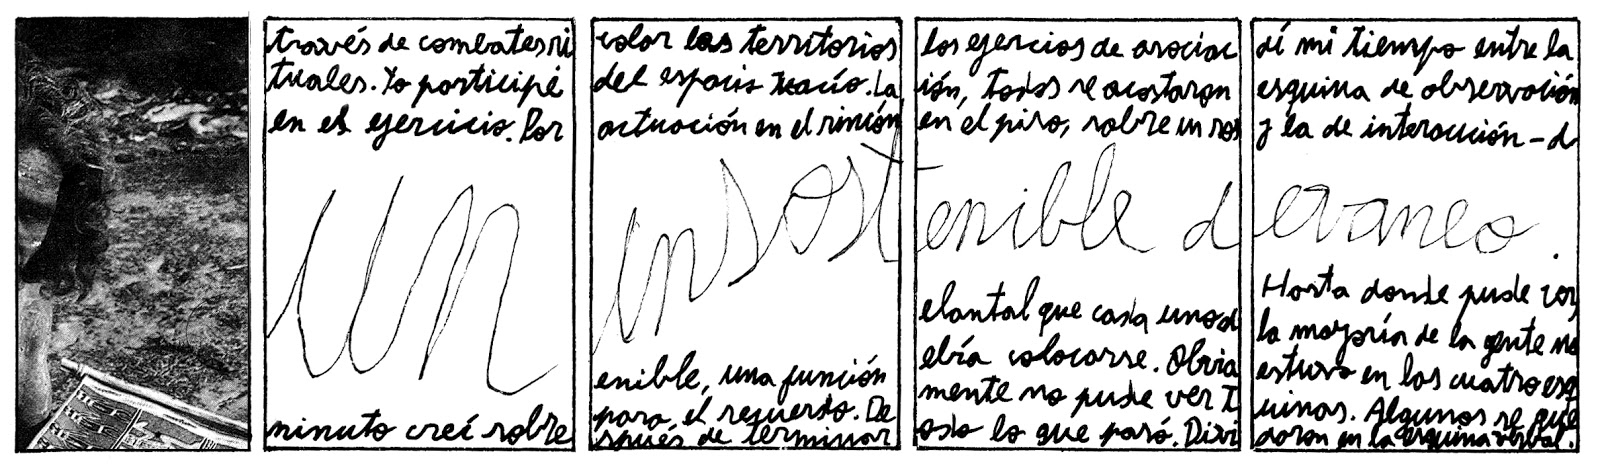 través de combates ri
tuales. Yo participé
en el ejercicio. Por
un
minuto creí sobre
color los territorios
del espacio vacío. La
actuación en el rincón
insost
enible, una función
para el recuerdo. De
spués de terminar
los ejercios de asociac
ión, todos se acostaron
en el piso, sobre un ros
enible d
elantal que cada uno d
ebía colocarse. Obvia
mente no pude ver t
odo lo que pasó. Divi
dí mi tiempo entre la
esquina de observación
y la de interacción - d
evaneo.
Hasta donde pude ver,
la mayoría de la gente no
estuvo en las cuatro esq
uinas. Algunos se que
daron en la esquina verbal.